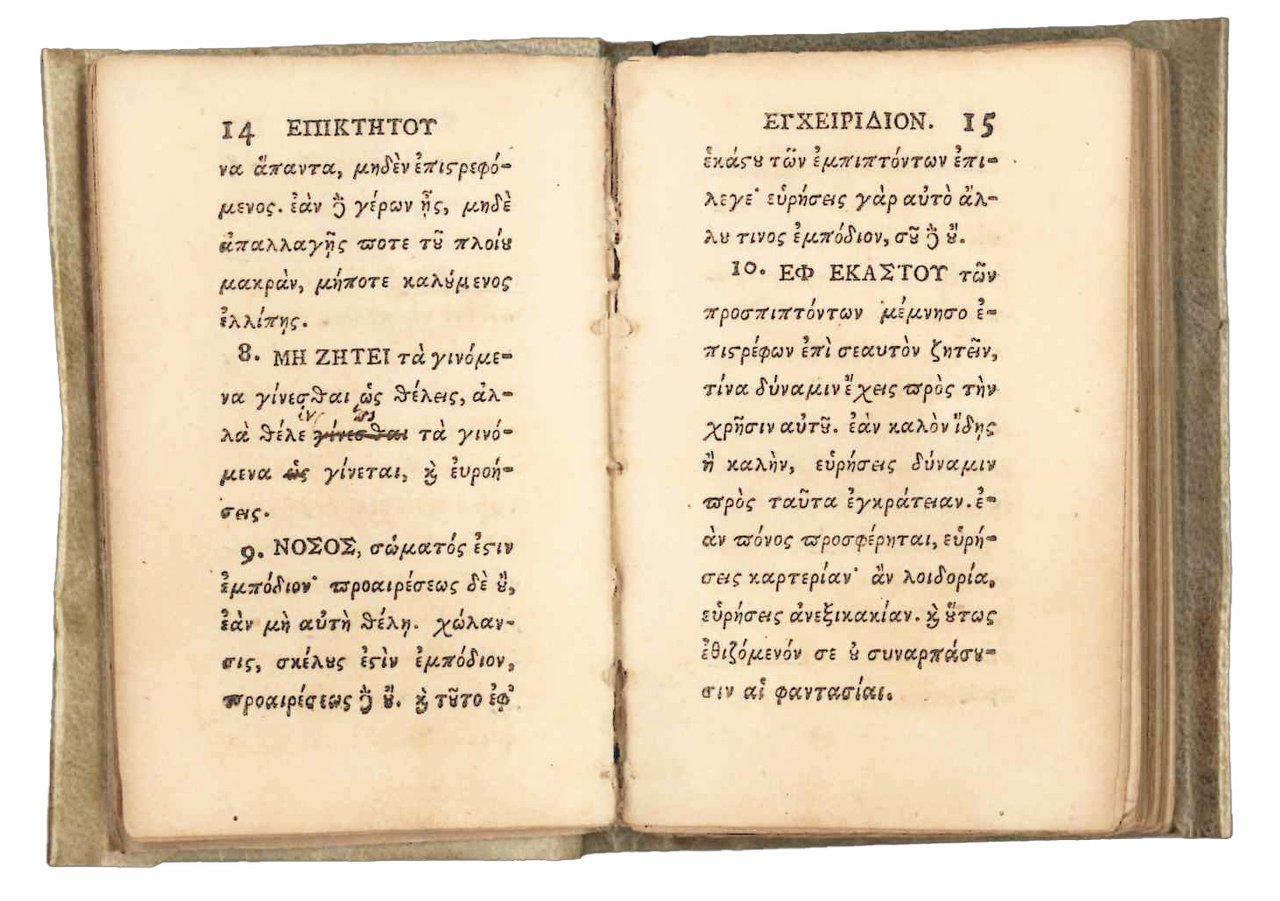 14 ΕΠΙΚΤΗΤΟΥ
να ἅπαντα, μηδὲν ἐπιϛρεφό-
μενος. ἐὰν ὃ γέρων ᾖς, μηδὲ
ἀπαλλαγῇς ϖοτε τȣ͂ πλοίȣ
μακρὰν, μήποτε καλȣ́μενος
ἐλλίπῃς.
8. ΜΗ ΖΗΤΕΙ τὰ γινόμε-
να γίνεσθαι ὡς θέλεις, ἀλ-
λὰ θέλε γίνεσθαι τὰ γινό-
μενα ὡς γίνεται, ϗ̀ ἐυροή-
σεις.
9. ΝΟΣΟΣ, σώματός ἐϛιν
ἐμπόδιον· ϖροαιρέσεως δὲ ȣ̓,
ἐὰν μὴ αὐτὴ θέλῃ. χώλαν-
σις, σκέλȣς ἐϛὶν ἐμπόδιον,
ϖροαιρέσεως ὃ ȣ̓́. ϗ̀ τȣ͂το ἐφ'
ΕΓΧΕΙΡΙΔΙΟΝ. 15
ἑκάϛȣ τῶν ἐμπιπτόντων ἐπι-
λεγε· εὑρήσεις γὰρ αὐτὸ ἄλ-
λȣ τινος ἐμπόδιον, σȣ͂ ὃ ȣ̓́.
10. ΕΦ ΕΚΑΣΤΟΥ τῶν
προσπιπτόντων μέμνησο ἐ-
πιϛρέφων ἐπὶ σεαυτὸν ζητεῖν,
τίνα δύναμιν ἔχεις ϖρὸς τὴν
χρῆσιν αὐτȣ͂. ἐὰν καλὸν ἴδῃς
ἢ καλὴν, εὑρήσεις δύναμιν
ϖρὸς ταῦτα ἐγκράτειαν. ἐ-
ὰν ϖόνος ϖροσφέρηται, εὑρή-
σεις καρτερίαν· ἂν λοιδορία,
εὑρήσεις ἀνεξικακίαν. ϗ̀ ȣ̔́τως
ἐθιζόμενόν σε ȣ̓ συναρπάσȣ-
σιν αἱ φαντασίαι.